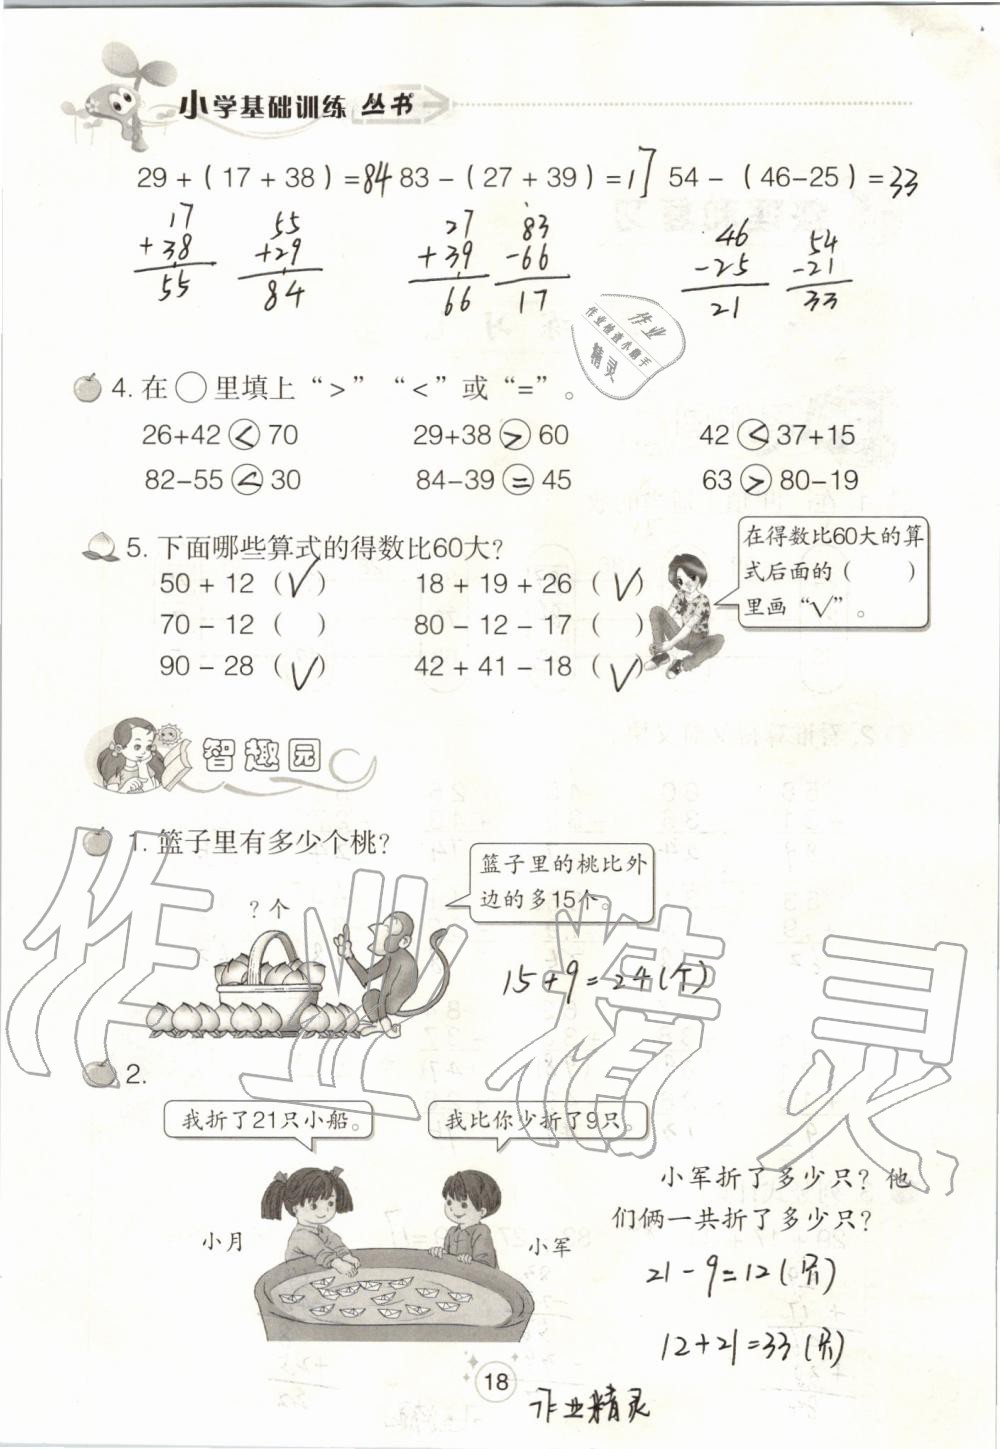 小学基础训练 丛书
29 + ( 17 + 38 ) = 84 83 - ( 27 + 39 ) = 17 54 - ( 46-25 ) = 33
17 55 27 83 46 54
+38 +29 +39 -66 -25 -21
55 84 66 17 21 33
作业
作业检查小助手
精灵
4. 在 ○ 里填上 “ > ” “ < ” 或 “ = ” 。
26+42 < 70 29+38 > 60 42 < 37+15
82-55 < 30 84-39 = 45 63 > 80-19
5. 下面哪些算式的得数比60大?
在得数比60大的算
式后面的 ( )
里画 “√” 。
50 + 12 ( √ ) 18 + 19 + 26 ( √ )
70 - 12 ( ) 80 - 12 - 17 ( )
90 - 28 ( √ ) 42 + 41 - 18 ( √ )
智趣园
1. 篮子里有多少个桃?
篮子里的桃比外
边的多15个。
? 个
15+9=24(个)
作业精灵
2.
我折了21只小船。 我比你少折了9只。
小月 小军
小军折了多少只? 他
们俩一共折了多少只?
21-9=12(只)
12+21=33(只)
18
作业精灵